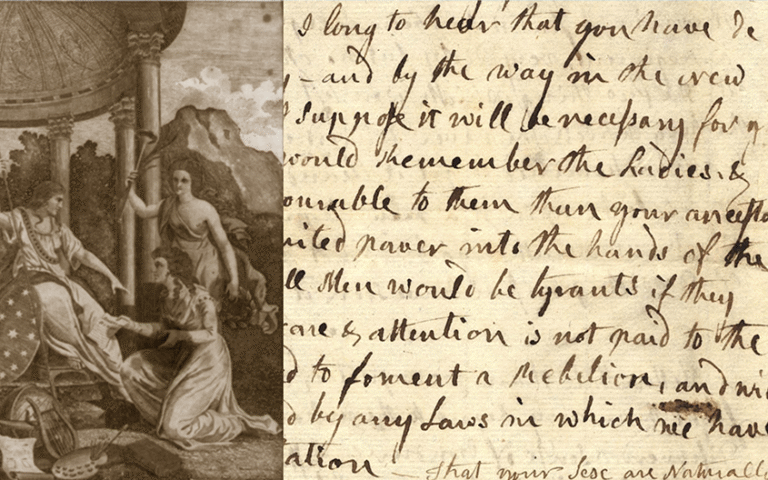 I long to hear that you have de
y - and by the way in the new
I suppose it will be necessary for y
would Remember the Ladies, &
ourable to them than your ancesto
mited power into the hands of the
ll Men would be tyrants if they
care & attention is not paid to the
d to foment a Rebelion, and wi
d by any Laws in which we have
tation — That your Sex are Naturally